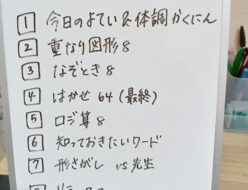 1 今日のよてい&体調かくにん
2 重なり図形8
3 なぞとき8
4 はかせ64(最終)
5 ロジ算8
6 知っておきたいワード
7 形さがし vs先生